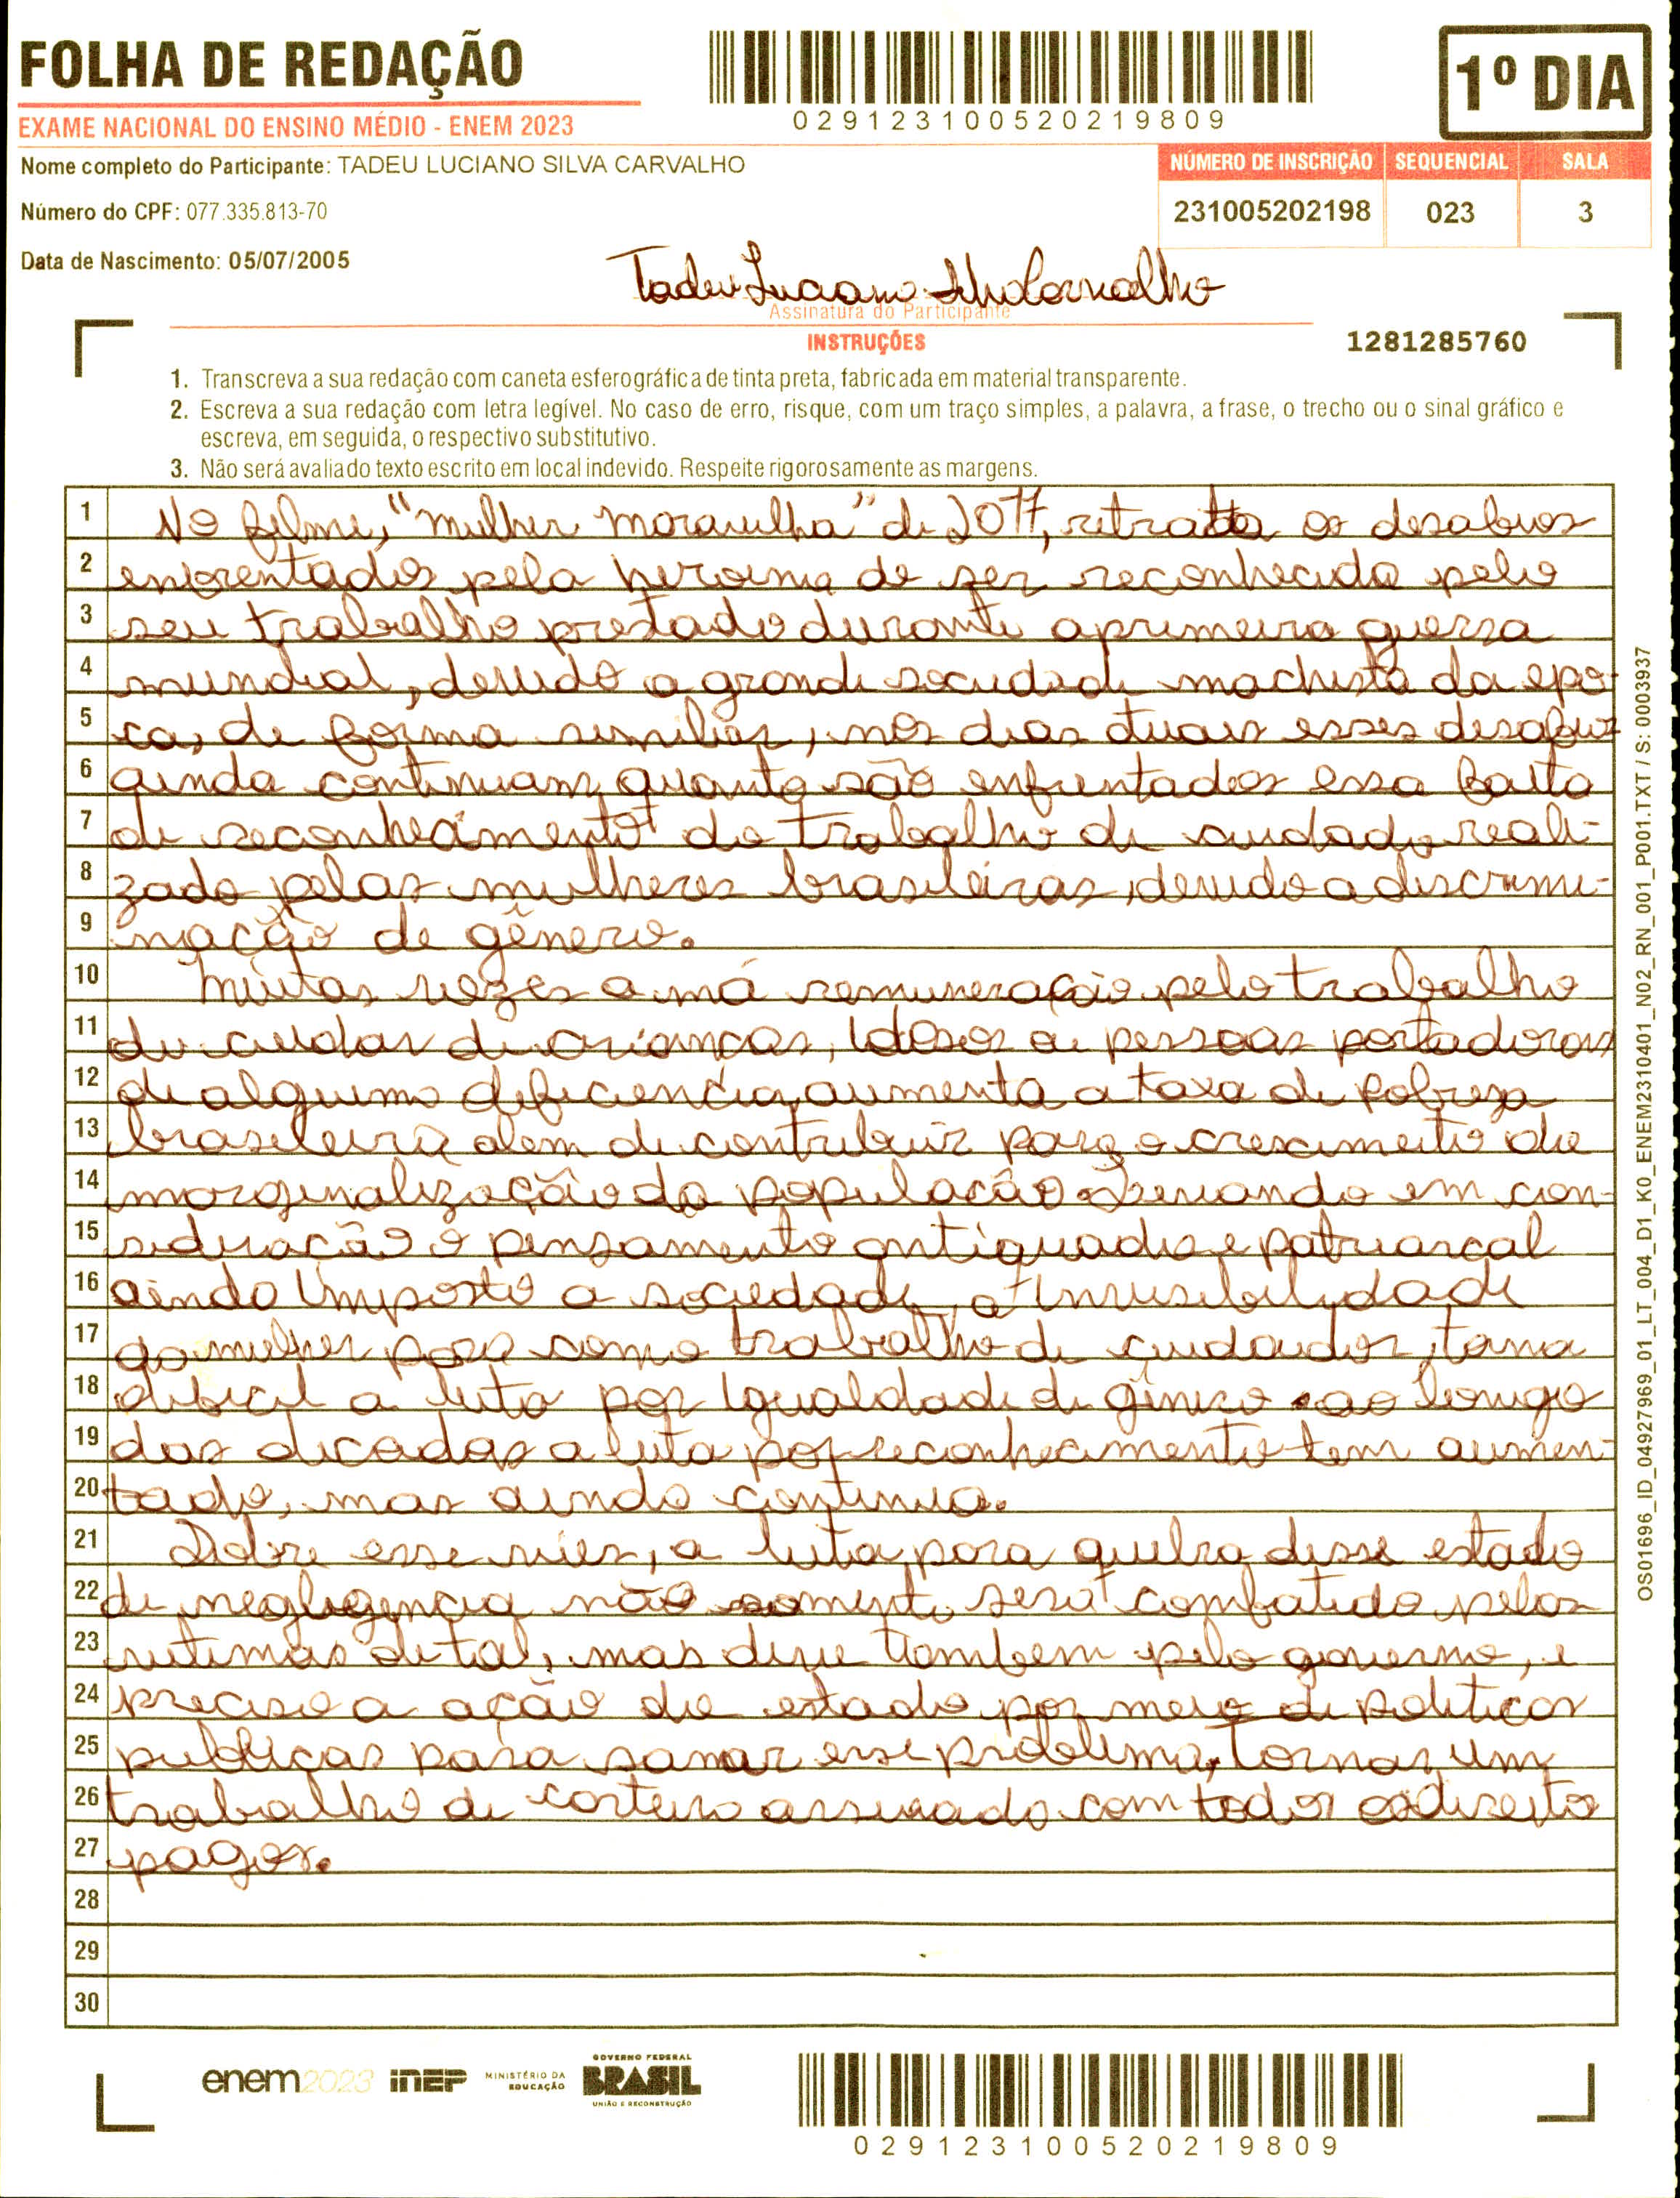 FOLHA DE REDAÇÃO
EXAME NACIONAL DO ENSINO MÉDIO - ENEM 2023
029123100520219809
1º DIA
Nome completo do Participante: TADEU LUCIANO SILVA CARVALHO
Número do CPF: 077.335.813-70
Data de Nascimento: 05/07/2005
NÚMERO DE INSCRIÇÃO SEQUENCIAL SALA
231005202198 023 3
Tadeu Luciano Silva Carvalho
Assinatura do Participante
INSTRUÇÕES
1281285760
1. Transcreva a sua redação com caneta esferográfica de tinta preta, fabricada em material transparente.
2. Escreva a sua redação com letra legível. No caso de erro, risque, com um traço simples, a palavra, a frase, o trecho ou o sinal gráfico e
escreva, em seguida, o respectivo substitutivo.
3. Não será avaliado texto escrito em local indevido. Respeite rigorosamente as margens.
1 No filme, "mulher maravilha" de 2017, retrata os desafios
2 enfrentados pela heroina de ser reconhecida pelo
3 seu trabalho prestado durante a primeira guerra
4 mundial, devido a grande sociedade machista da epo-
5 ca, de forma similar, nos dias tuais esses desafios
6 ainda continuam, quanto são enfrentados essa falta
7 de reconhecimento do trabalho de cuidado reali-
8 zado pelas mulheres brasileiras, devido a discrimi-
9 nação de gênero.
10 Muitas vezes a má remuneração pelo trabalho
11 de cuidar de crianças, idosos e pessoas portadoras
12 de alguma deficiencia, aumenta a taxa de pobreza
13 brasileira alem de contribuir para o crescimento da
14 marginalização da população. Levando em con-
15 sideração o pensamento antiquado e patriarcal
16 ainda imposto a sociedade, a invisibilidade
17 da mulher para como trabalho de cuidador, torna
18 dificil a luta por igualdade de gênero. ao longo
19 das decadas a luta por reconhecimento tem aumen-
20 tado, mas ainda continua.
21 Sobre esse viés, a luta para quebra desse estado
22 de negligencia não somente será combatido pelas
23 vitimas de tal, mas deve tambem pelo governo, e
24 preciso a ação do estado por meio de politicas
25 publicas para sanar esse problema, tornar um
26 trabalho de carteira assinada com todos os direito
27 pagos.
28
29
30
OS01696_ID_04927969_01_LT_004_D1_K0_ENEM2310401_N02_RN_001_P001.TXT / S: 0003937
enem2023 inep MINISTÉRIO DA EDUCAÇÃO GOVERNO FEDERAL BRASIL UNIÃO E RECONSTRUÇÃO
029123100520219809